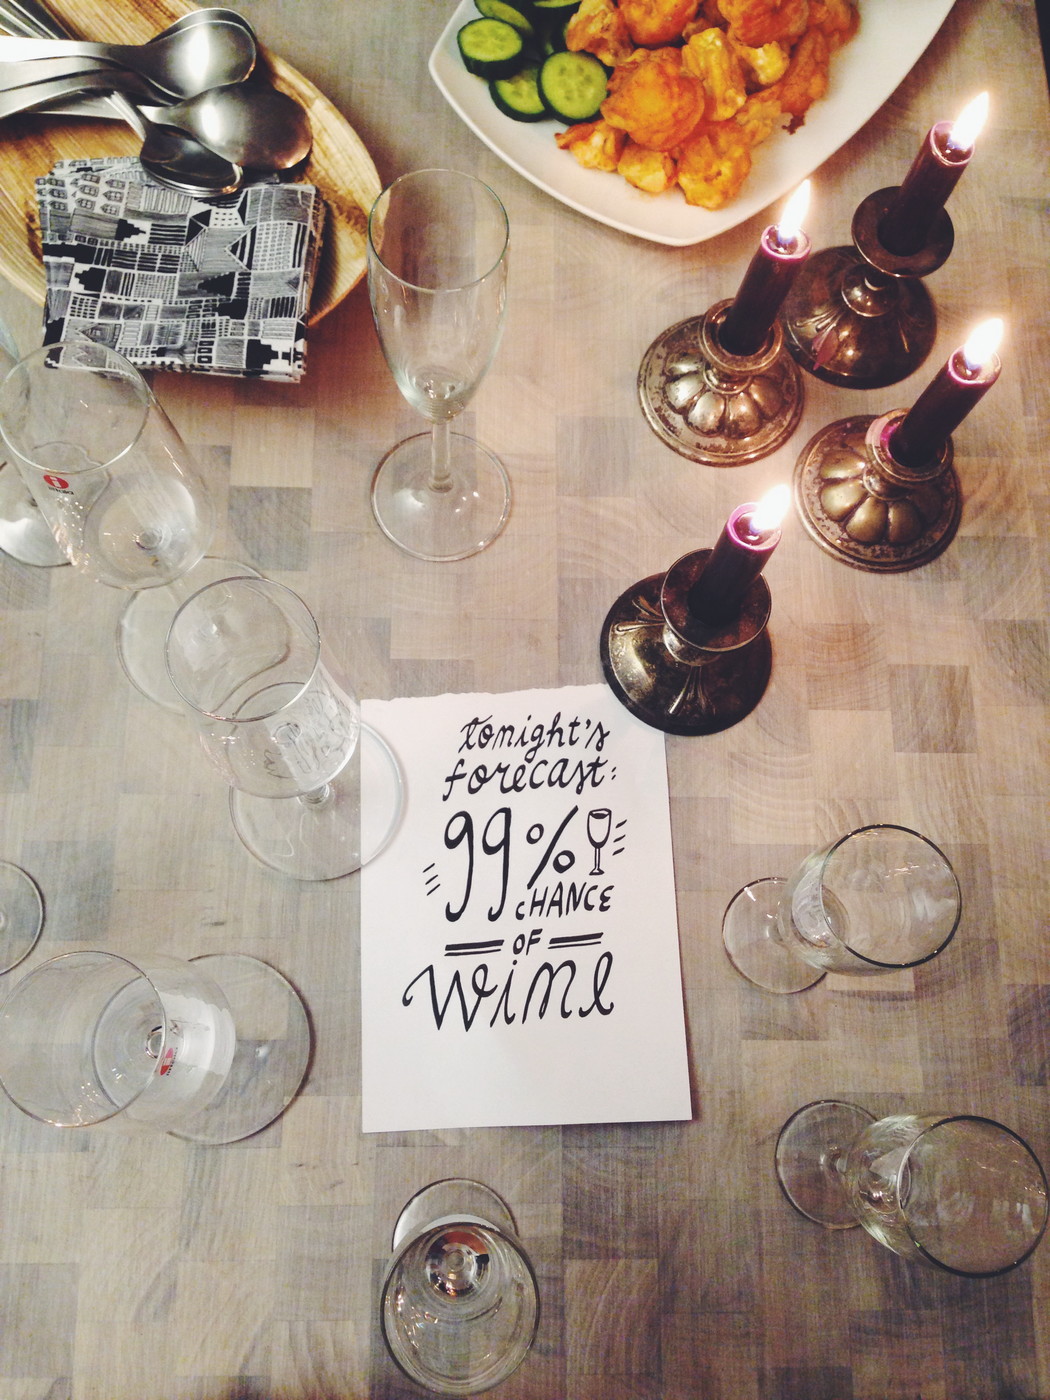 tonight's
forecast:
99%
CHANCE
OF
wine